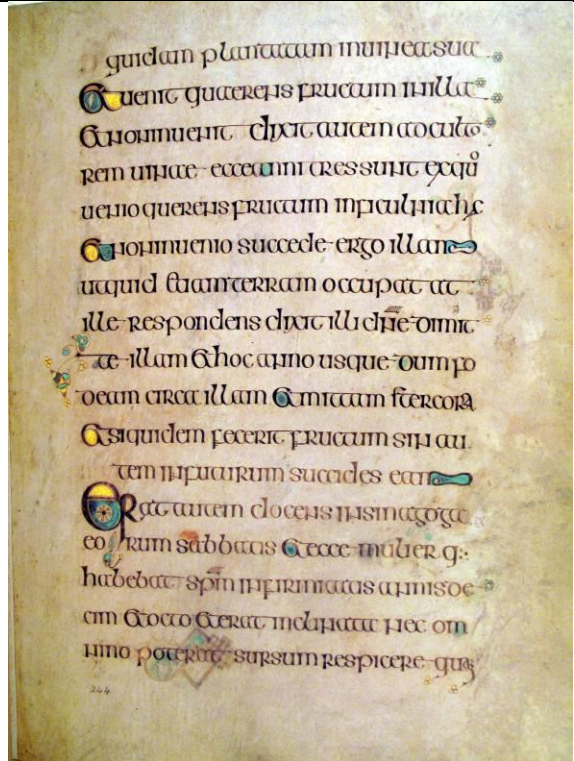 quidam plantatam inuinea sua
& uenit quaerens fructum inilla
& noninuenit dixit autem adculto
rem uineae ecce anni tres sunt exquo
uenio querens fructum inficulnia hac
& noninuenio succede ergo illam
utquid &iamterram occupat at
ille respondens dixit illi dne dimit
te illam & hoc anno usque dum fo
deam circa illam & mittam stercora
& siquidem fecerit fructum sin au
tem infuturum succides eam
Erat autem docens insinagoga
eorum sabbatis & ecce mulier q:
habebat spm infirmitatis annis de
cim & octo & erat inclinata nec om
nino poterat sursum respicere
244